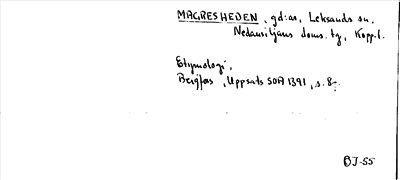 MAGRESHEDEN, gd:ar, Leksands sn.
Nedansiljans doms. tg, Kopp.l.
Etymologi.
Bergfors, Uppsats SOA 1391, s. 8-.
BJ-55